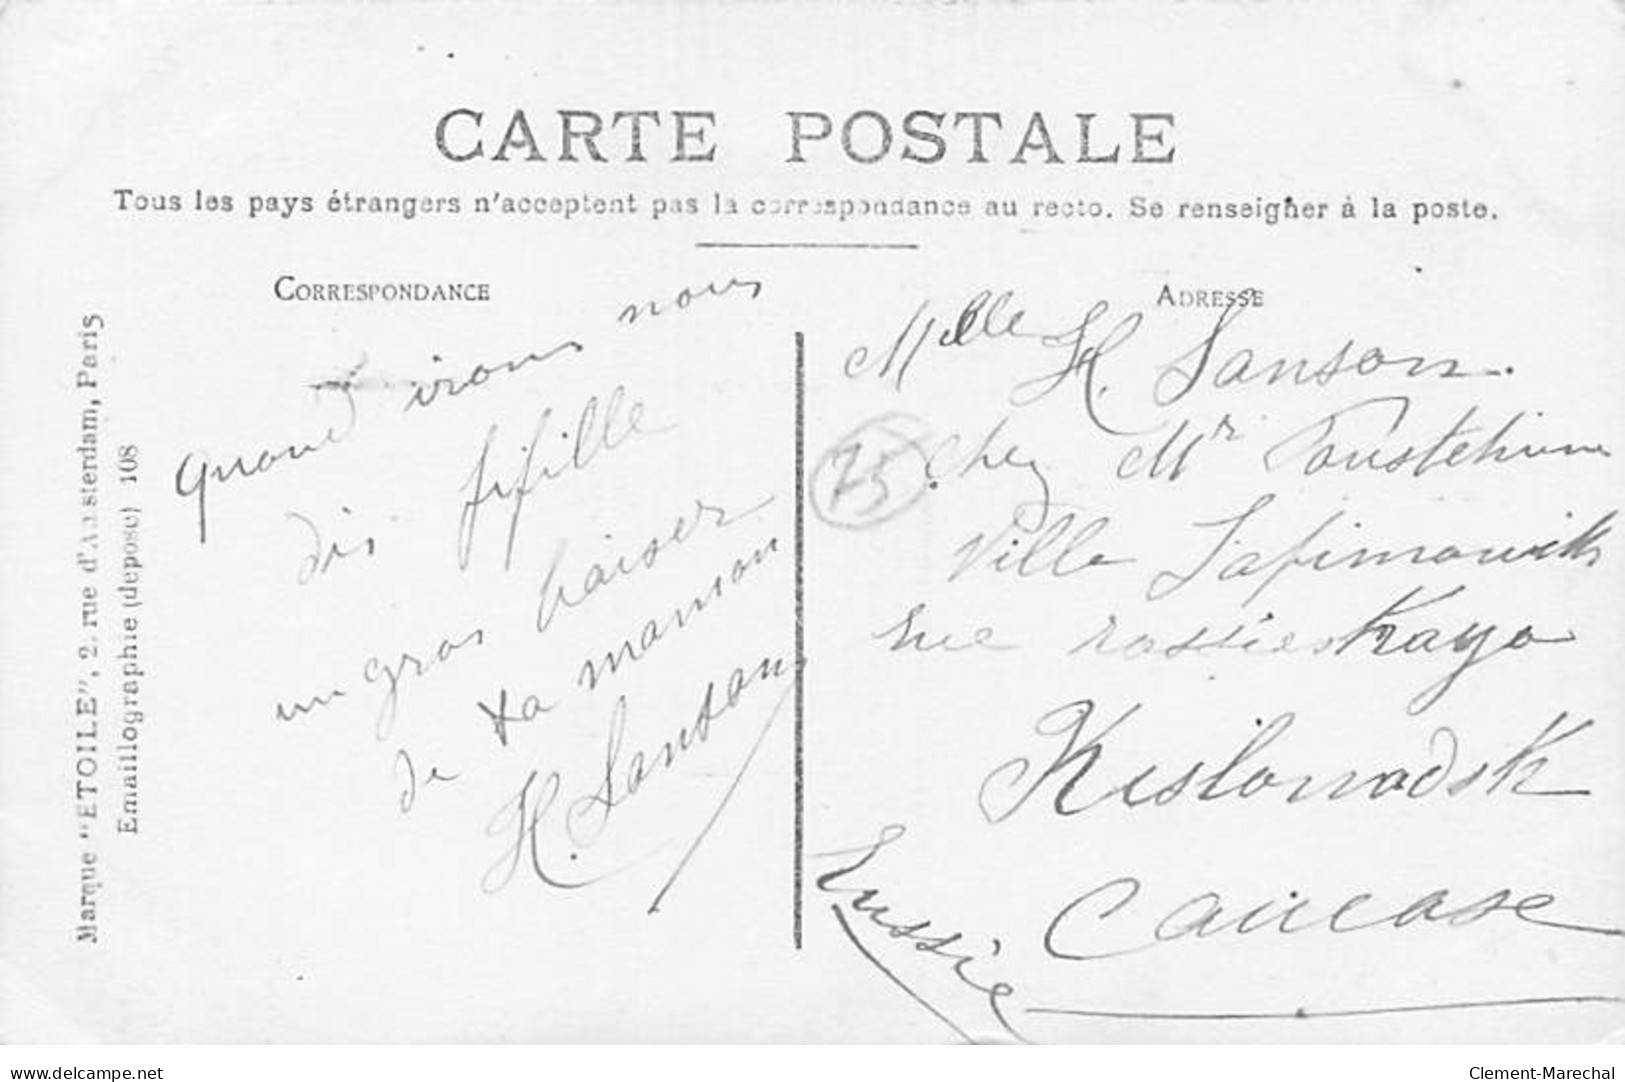 CARTE POSTALE
Tous les pays étrangers n'acceptent pas la correspondance au recto. Se renseigner à la poste.
CORRESPONDANCE
Quand irons nous
dis fifille
un gros baiser
de ta maman
H. Sanson
ADRESSE
Melle H. Sanson.
chez Mr
Villa
rue
Kislowodsk
Caucase
Russie
75
Marque "ETOILE", 2, rue d'Amsterdam, Paris
Emaillographie (déposé) 108
delcampe.net
Clement-Marechal